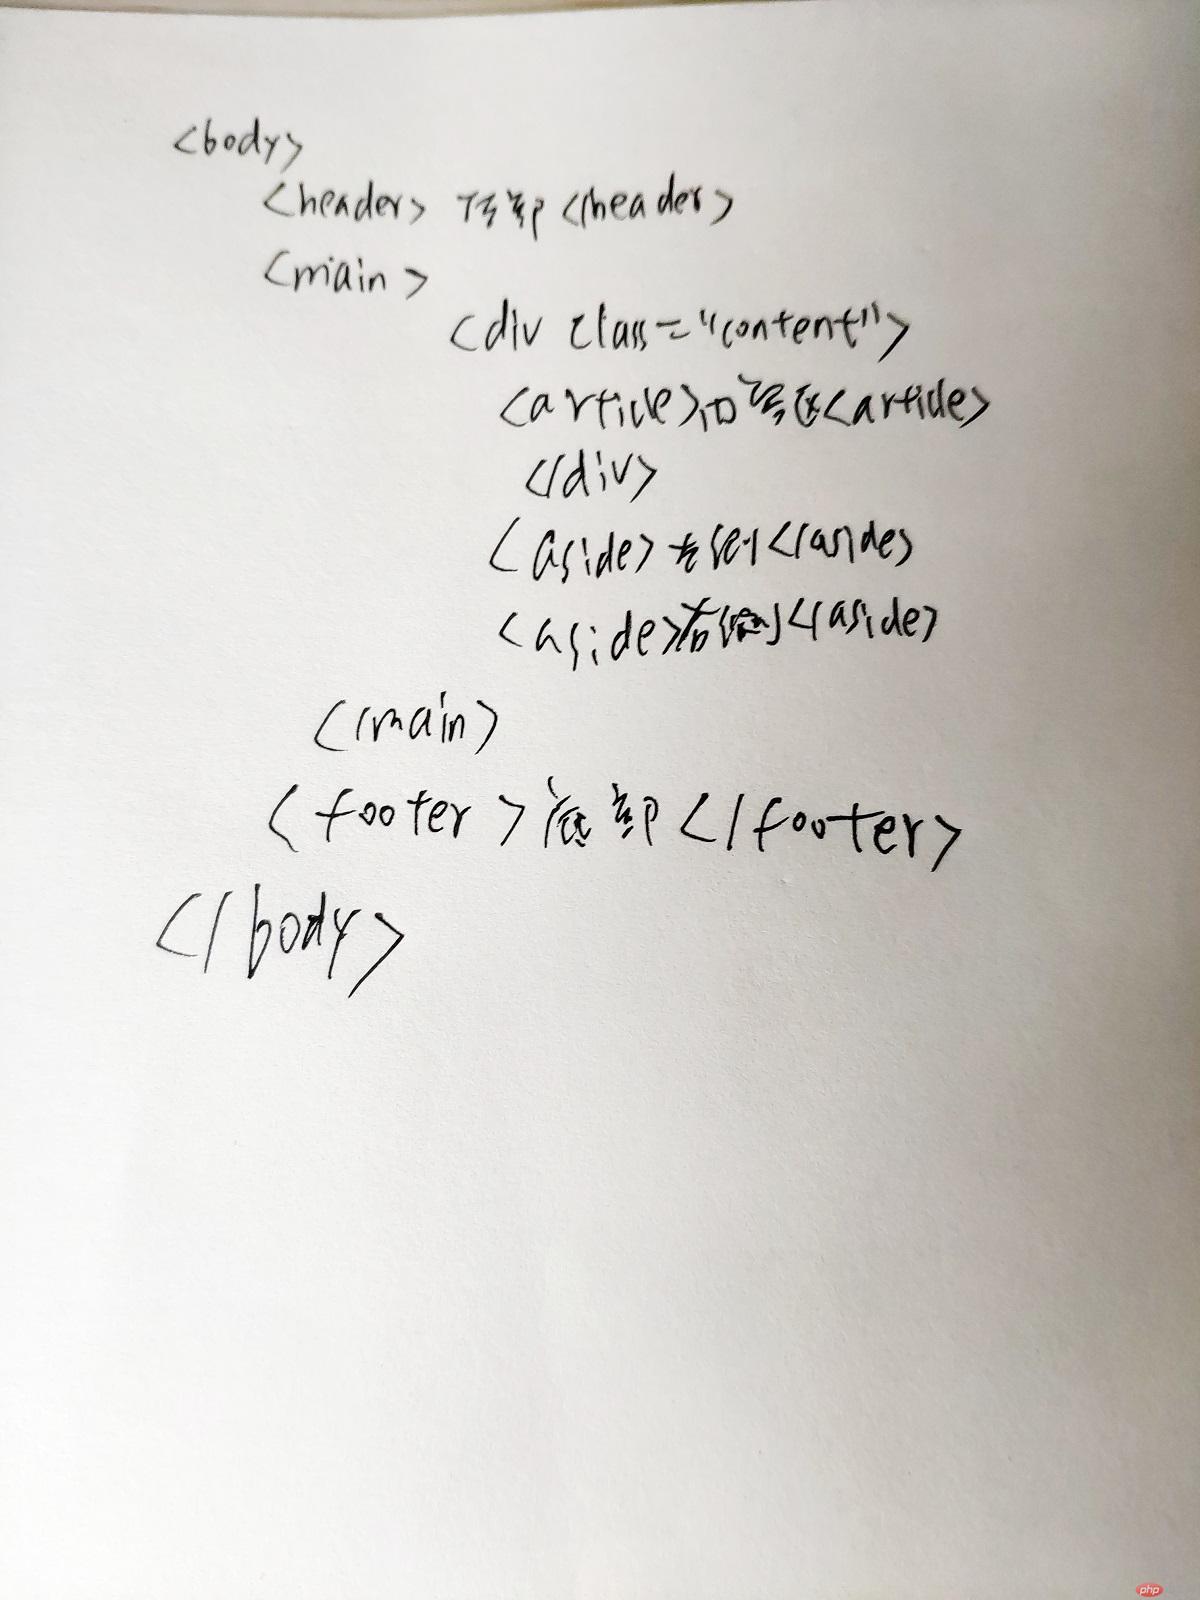 <body>
<header> 部</header>
<main>
<div class="content">
<article>内容区<article>
</div>
<aside>左侧</aside>
<aside>右侧</aside>
</main>
<footer>底部</footer>
</body>
php